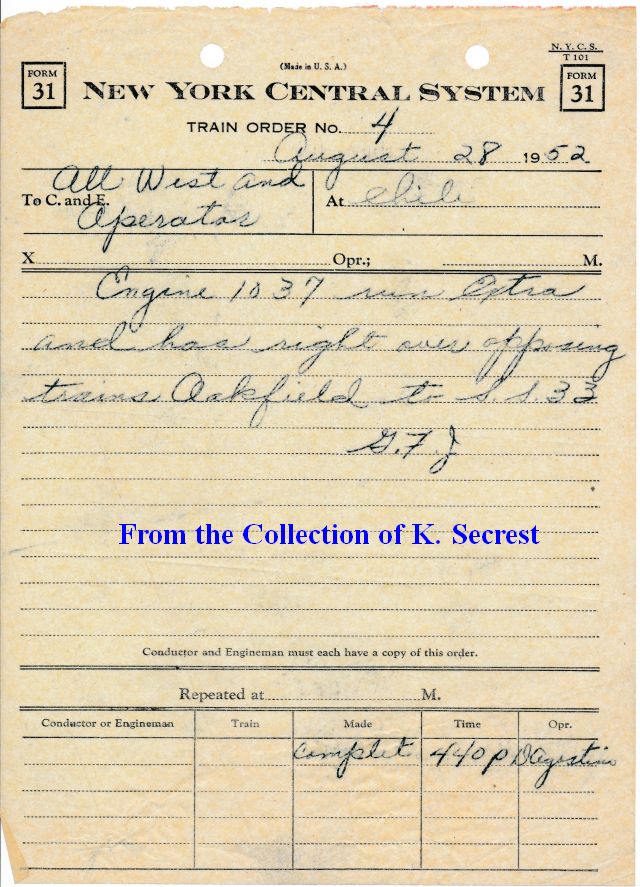 N. Y. C. S.
T 101
(Made in U. S. A.)
FORM
31
NEW YORK CENTRAL SYSTEM
FORM
31
TRAIN ORDER No. 4
August 28 1952
To C. and E. All West and
Operator
At Chili
X Opr.; M.
Engine 1037 run Extra
and has right over opposing
trains Oakfield to S.S. 33
G.F.J
From the Collection of K. Secrest
Conductor and Engineman must each have a copy of this order.
Repeated at M.
Conductor or Engineman Train Made Time Opr.
Complet 440 p D'Agostino